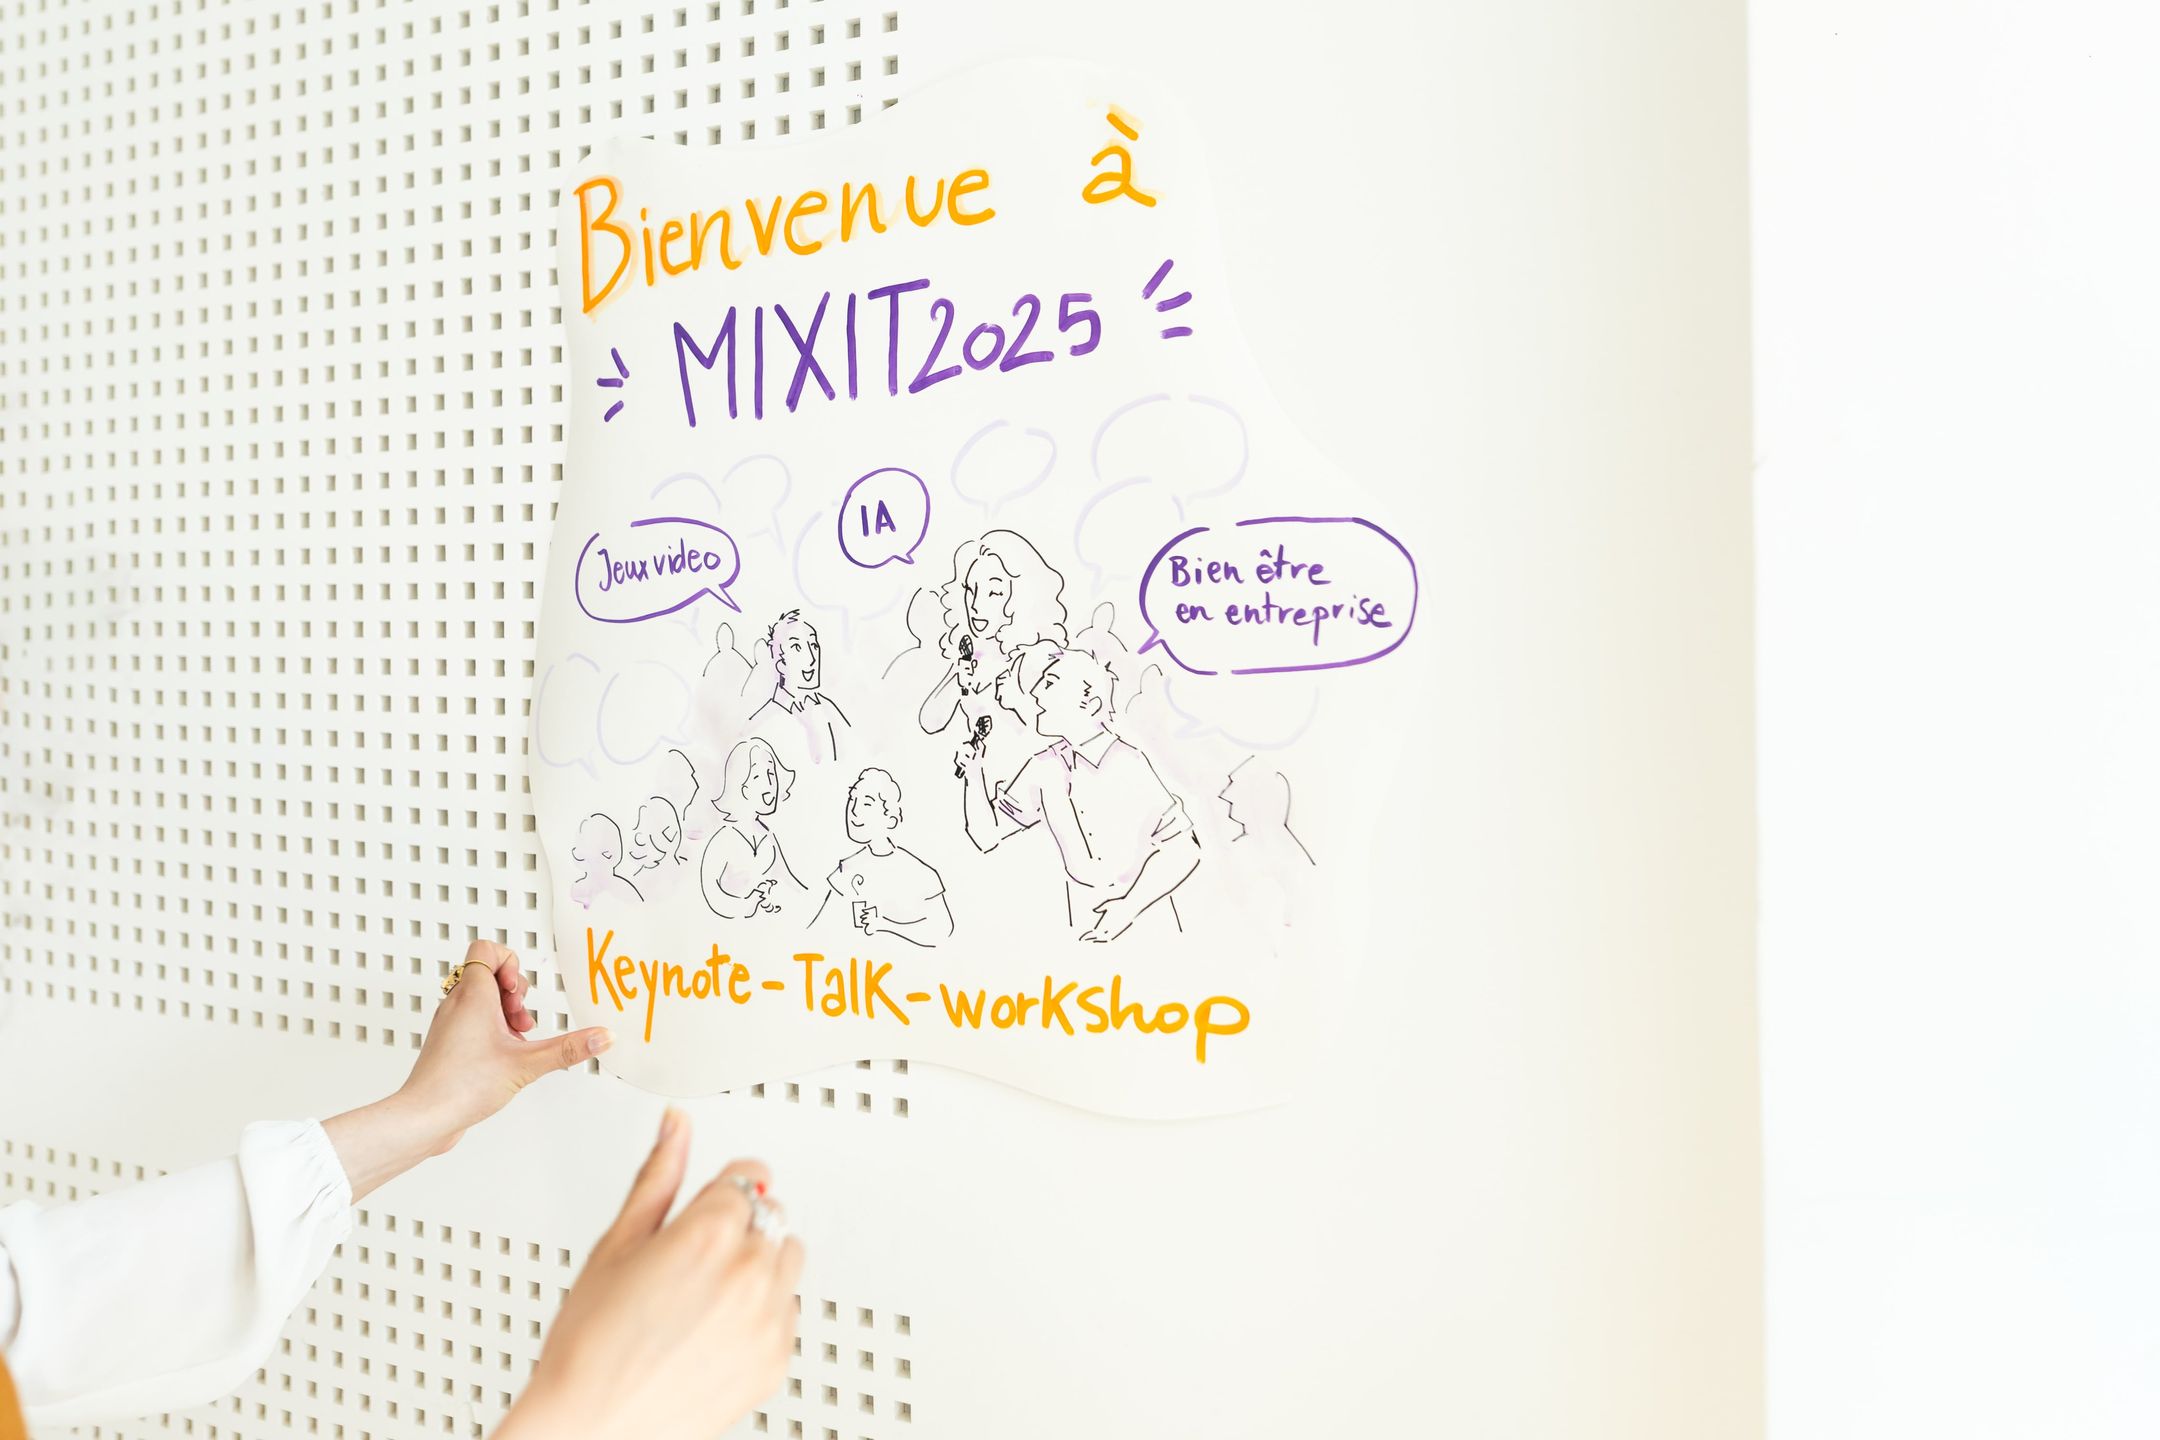 Bienvenue à
MIXIT2025
IA
Jeux video
Bien être
en entreprise
Keynote - Talk - workshop